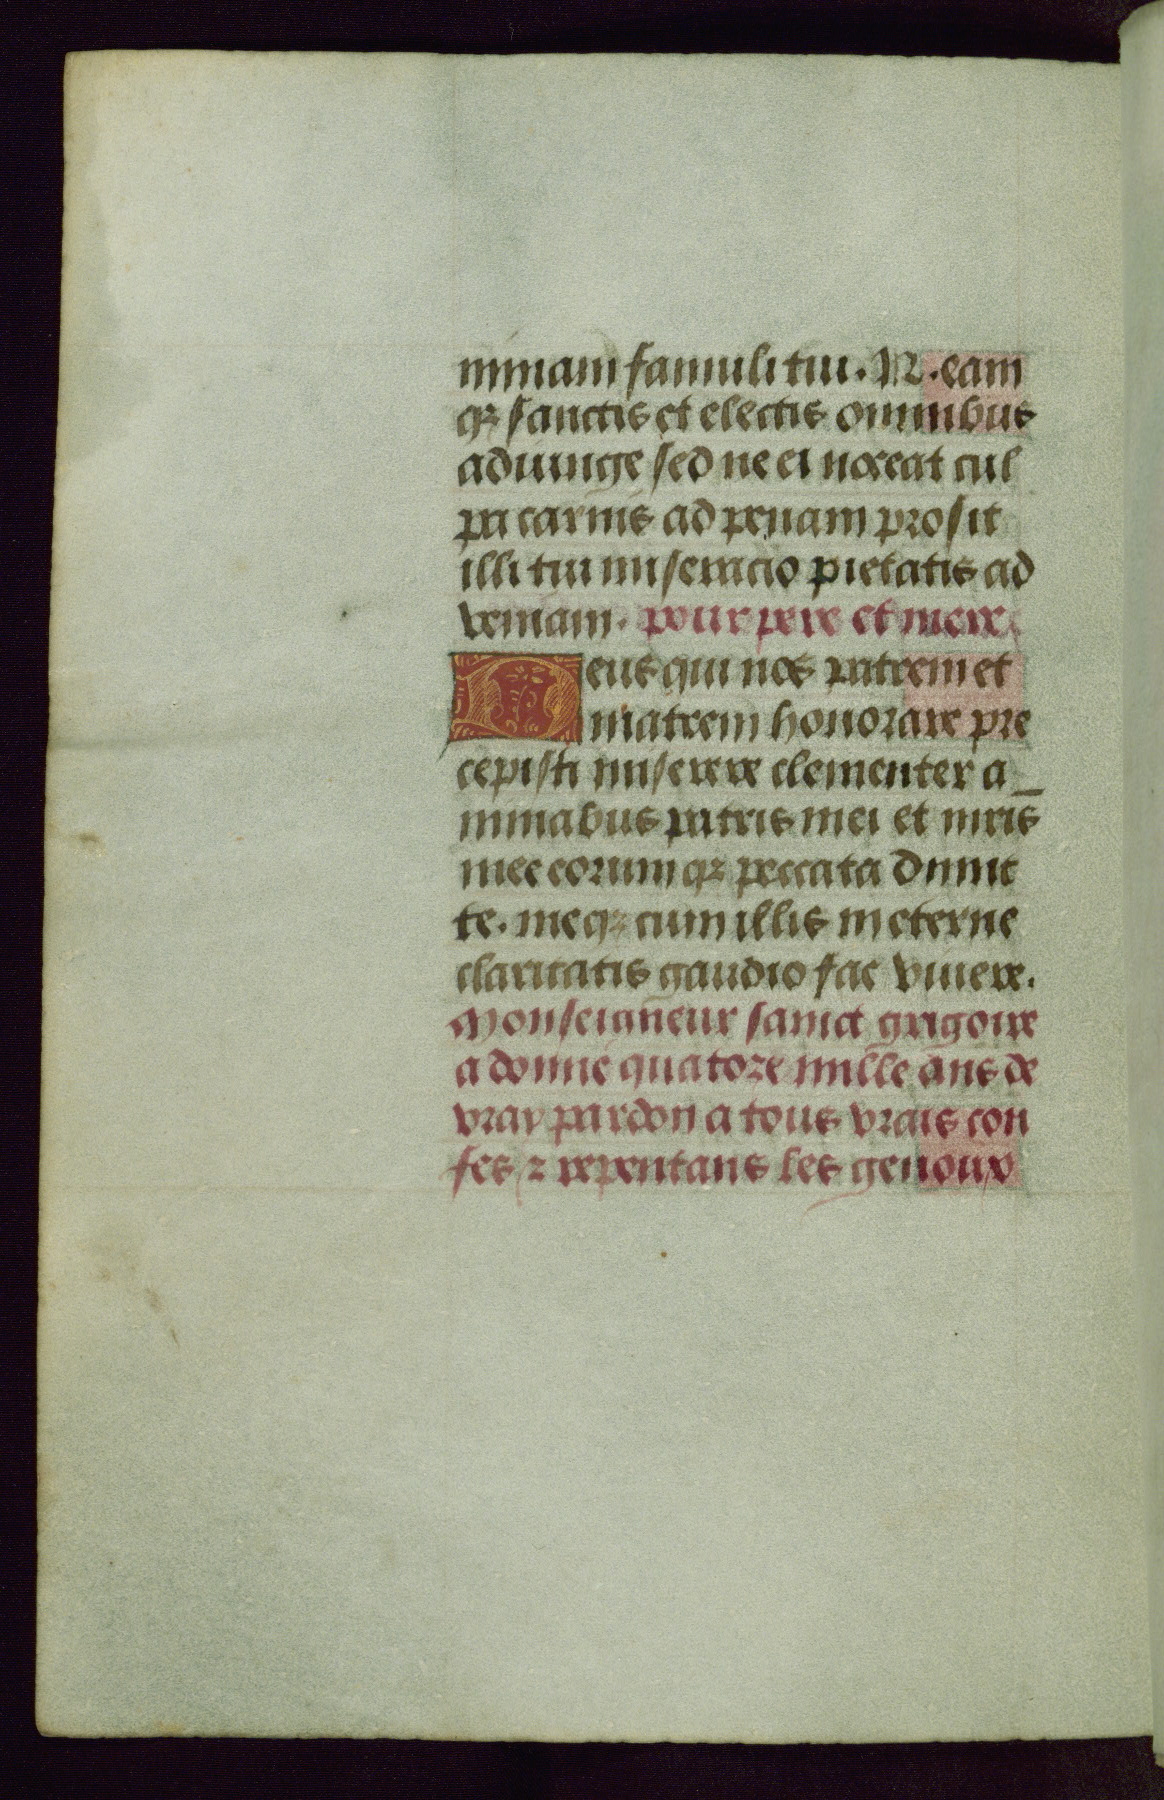 nimam famuli tui. N. eam
qꝫ sanctis et electis omnibus
adiunge sed ne ei noceat cul
pa carnis ad penam prosit
illi tui miseracio pietatis ad
veniam. pour pere et mere
Deus qui nos patrem et
matrem honorare pre
cepisti miserere clementer a_
nimabus patris mei et mr̄is
mee eorumqꝫ peccata dimit
te. meqꝫ cum illis in eterne
claritatis gaudio fac vivere.
Monseigneur sainct grigoire
a donne quatoze mille ans de
vray pardon a tous vrais con
fes ⁊ repentans les genoux